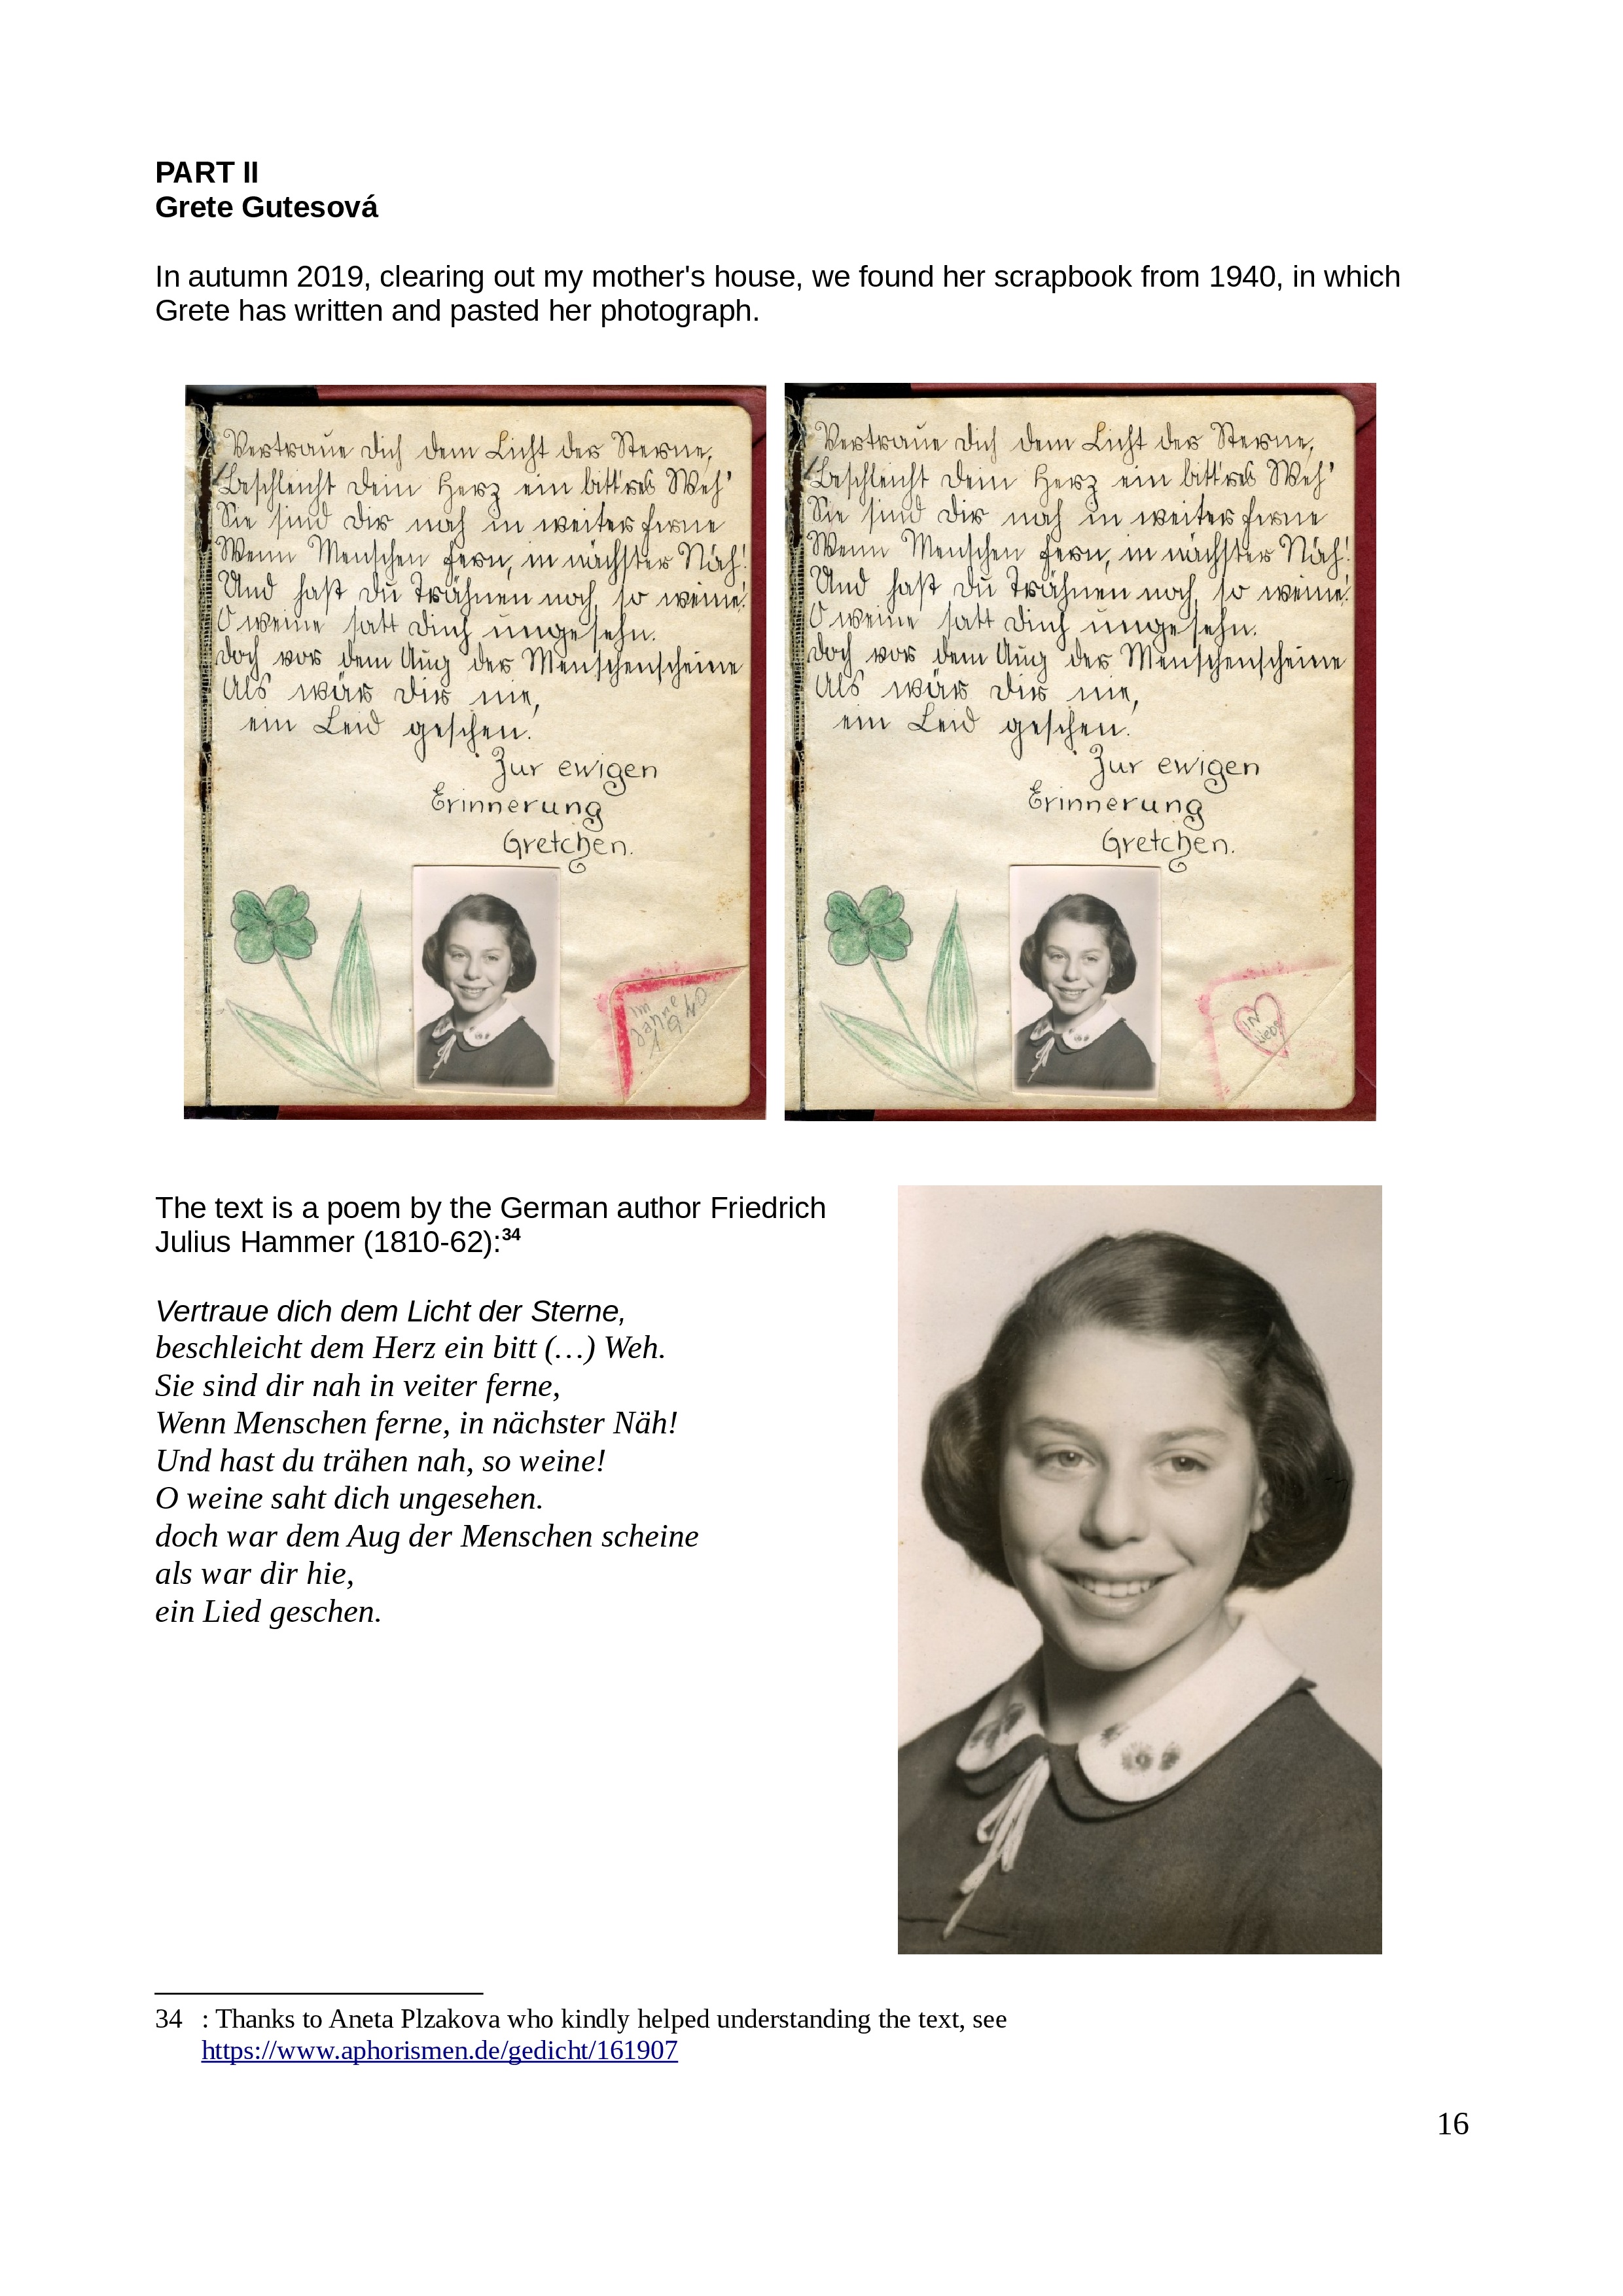 PART II
Grete Gutesová
In autumn 2019, clearing out my mother's house, we found her scrapbook from 1940, in which
Grete has written and pasted her photograph.
Vertraue dich dem Licht der Sterne,
Beschleicht dein Herz ein bitt'res Weh'
Sie sind dir nah in weiter ferne
Wenn Menschen fern, in nächster Näh!
Und hast du Trähnen noch, so weine!
O weine satt dich ungesehn.
doch vor dem Aug der Menschenscheine
Als wär dir nie,
ein Leid geschen.
Zur ewigen
Erinnerung
Gretchen.
Im
Jahre
1940
Vertraue dich dem Licht der Sterne,
Beschleicht dein Herz ein bitt'res Weh'
Sie sind dir nah in weiter ferne
Wenn Menschen fern, in nächster Näh!
Und hast du Trähnen noch, so weine!
O weine satt dich ungesehn.
doch vor dem Aug der Menschenscheine
Als wär dir nie,
ein Leid geschen.
Zur ewigen
Erinnerung
Gretchen.
IN
Liebe
The text is a poem by the German author Friedrich
Julius Hammer (1810-62):34
Vertraue dich dem Licht der Sterne,
beschleicht dem Herz ein bitt (…) Weh.
Sie sind dir nah in veiter ferne,
Wenn Menschen ferne, in nächster Näh!
Und hast du trähen nah, so weine!
O weine saht dich ungesehen.
doch war dem Aug der Menschen scheine
als war dir hie,
ein Lied geschen.
34 : Thanks to Aneta Plzakova who kindly helped understanding the text, see
https://www.aphorismen.de/gedicht/161907
16